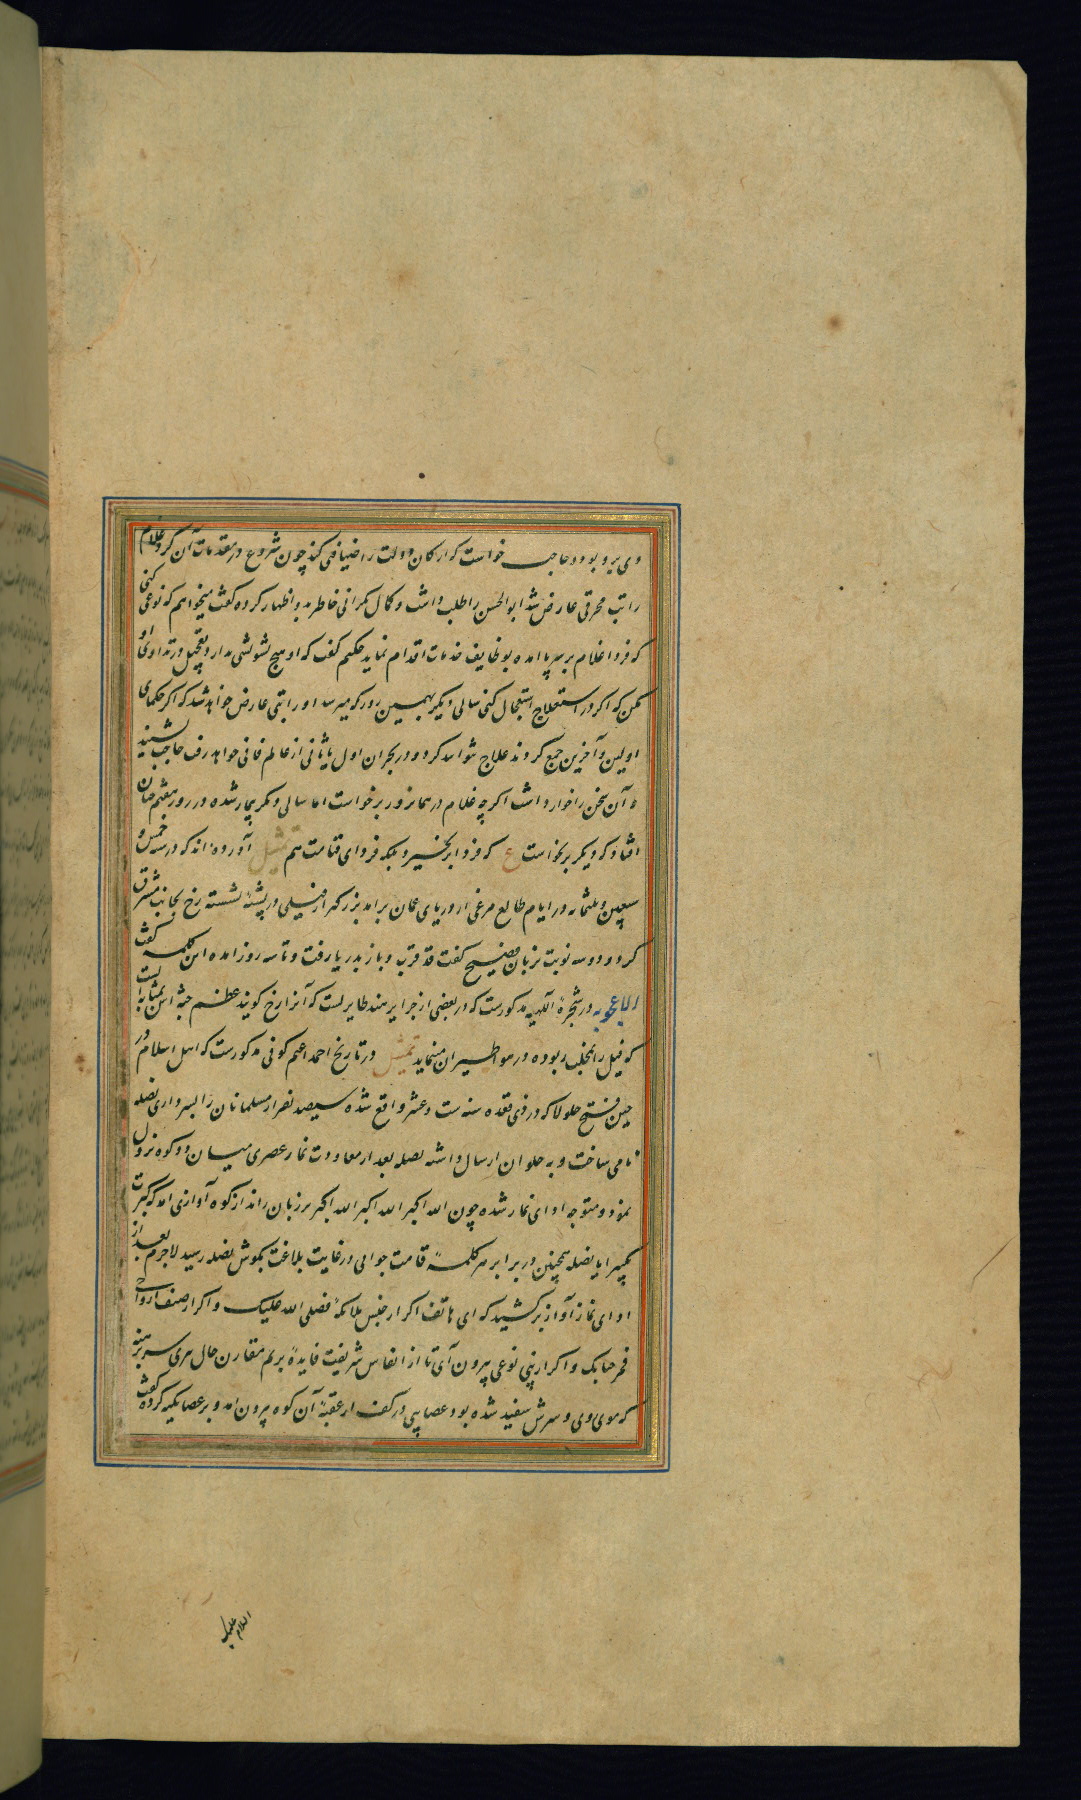 وی برو بود و حاجب خواست که ارکان دولت را ضیافتی کند چون شروع در مقدمات آن کرد غلام
را تب محرقی عارض شد ابو الحسن را طلب داشت و کمال نکرانی خاطر بدو اظهار کرده کفت میخواهم که نوعی کنی
که فردا غلام بر سر پا امده بوظایف خدمات اقدام نماید حکیم کفت که او هیچ تشویشی ندارد و تعجیل در تداوی او
مکن که اکر در استعلاج استعجال کنی سالی دیکر بهمین روز که میرسد او را تبی عارض خواهد شد که اکر حکمای
اولین و آخرین جمع کردند علاج نتوانند کرد و در بحران اول یا ثانی از عالم فانی خواهد رفت حاجب نشنید
و آن سخن را خوار داشت اکرچه غلام در همانروز برخاست اما سالی دیکر بیمار شده در روز هفتم چنان
افتاد که دیکر برنخاست ع که فردا برنخیزد بلکه فردای قیامت هم تمثیل آورده‌اند که در سنه خمس و
سبعین و ثلثمائه در ایام طالع مرغی از دریای عمان برامد بزرکتر از فیلی و بر پشتهٔ نشسته رخ بجانب مشرق
کرد و دو سه نوبت بزبان فصیح کفت قد قرب و باز بدریا رفت و تا سه روز امده این کلمه کفت
الاعجوبه در شجرهٔ الهیه مذکورست که در بعضی از جزایر هند طایریست که آنرا رخ کویند عظم جثه اش بمثابه ایست
که فیل را بمخلب ربوده در هوا طیران مینماید تمثیل در تاریخ احمد اعثم کوفی مذکورست که اهل اسلام در
حین فتح حلولا که در ذی قعده سنه ست و عشر واقع شده سیصد نفر از مسلمانان را بسرداری نضله
نامی ساخت و به حلوان ارسال داشته نضله بعد از معاودت نماز عصری میان دو کوه نزول
نمود و متوجه ادای نماز شده چون الله اکبر الله اکبر الله اکبر بر زبان راند از کوه آوازی امد که کبرت
کبیرا یا نضله همچنین در برابر هر کلمهٔ قامت جوابی در غایت بلاغت بکوش نضله رسید لاجرم بعد از
ادای نماز آواز برکشید که ای هاتف اکر از جنس ملائکهٔ فصلی الله علیک و اکر از صنف ارواحی
فمرحبا بک و اکر از بنی نوعی بیرون آی تا از انفاس شریفت فایدهٔ بریم مقارن حال مردی سر برهنه
که موی وی و سرش سفید شده بود عصایی در کف از عقبهٔ آن کوه بیرون امد و بر عصا تکیه کرده کفت
السلام علیک